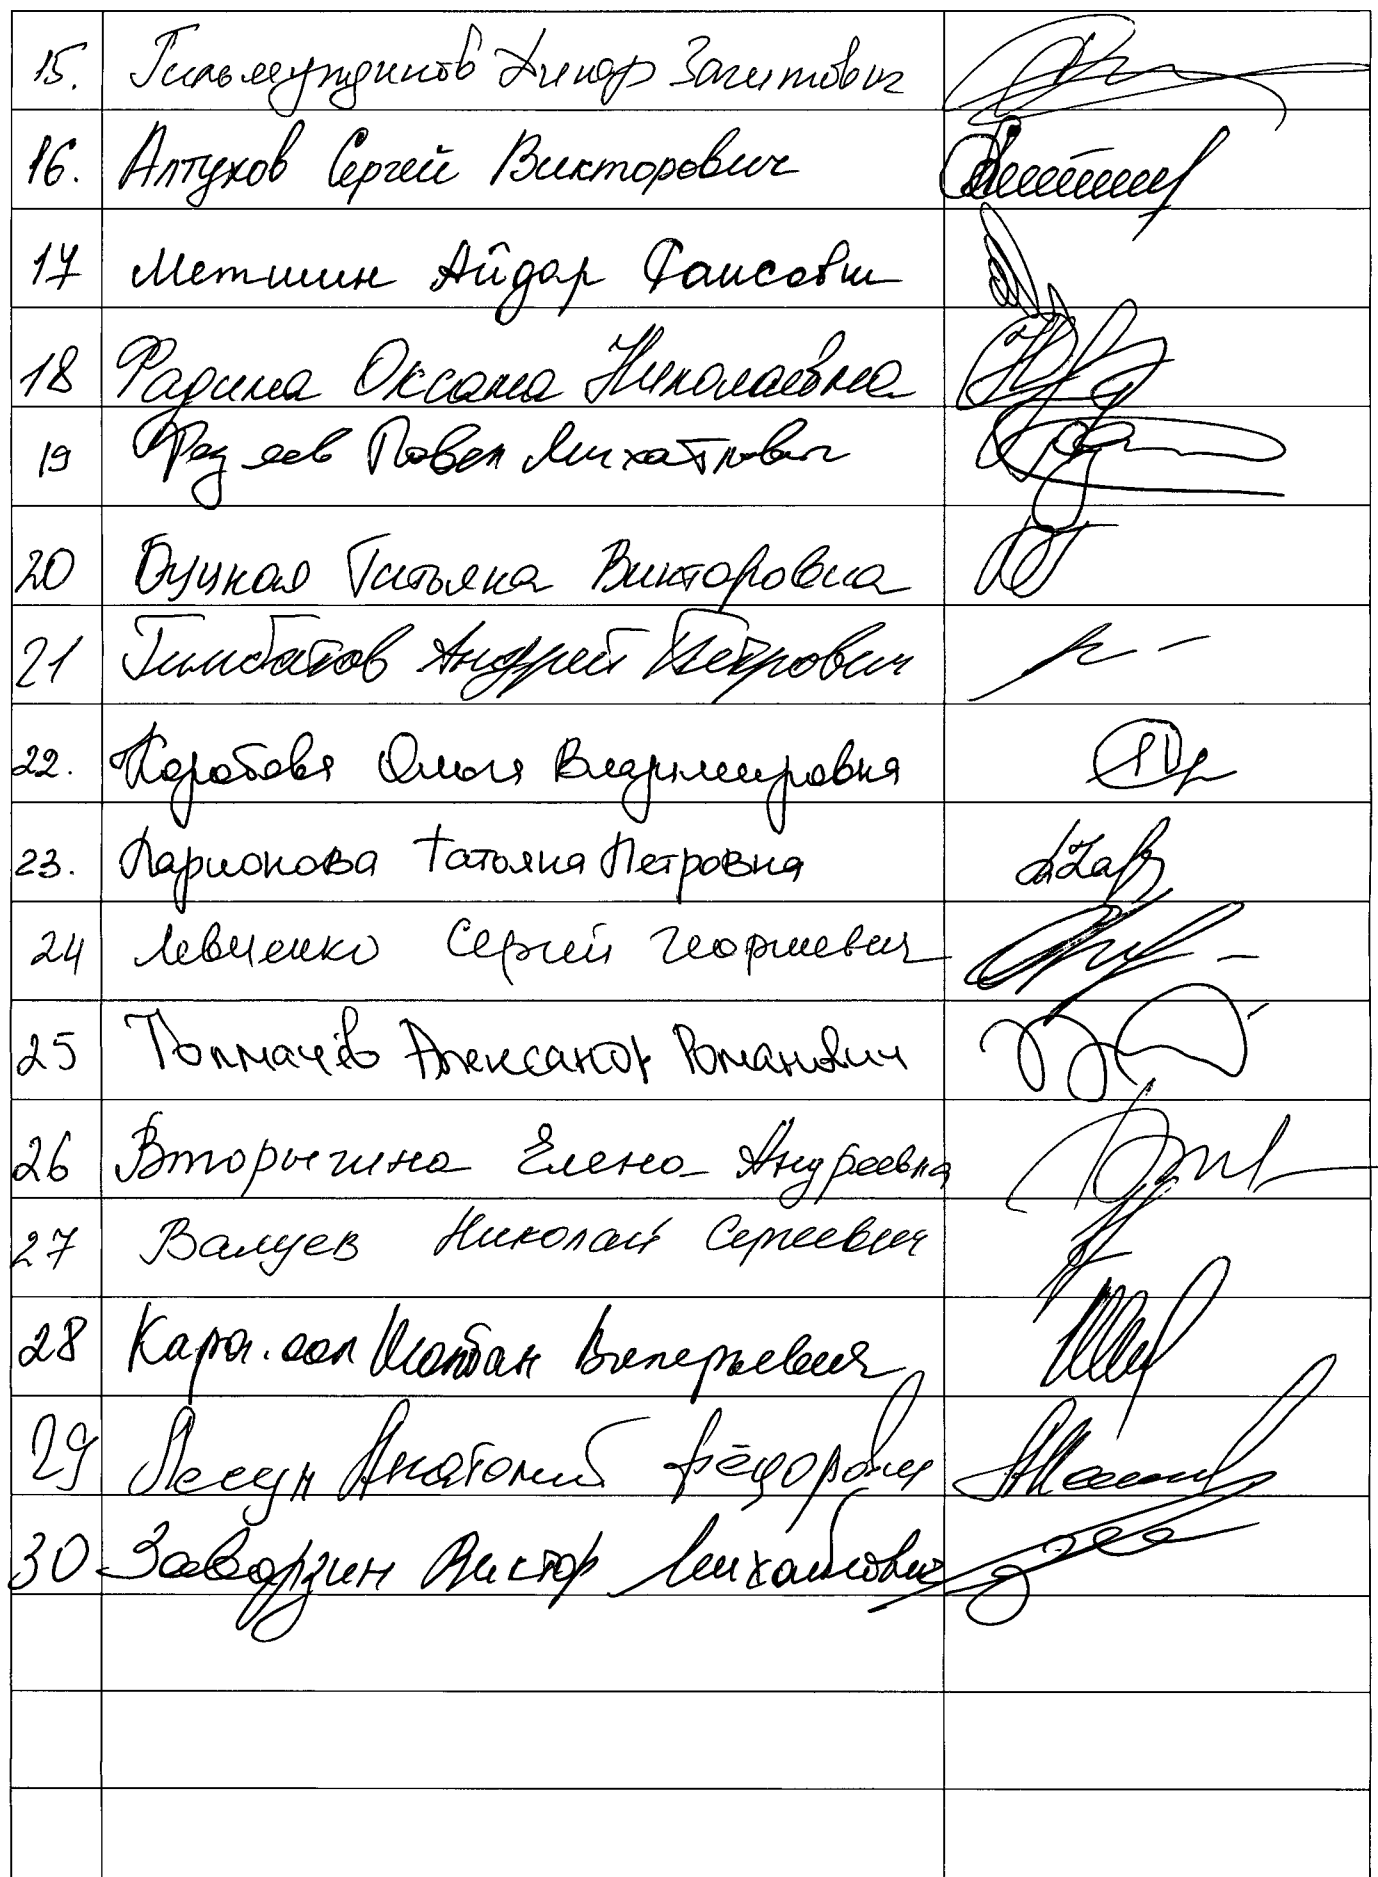 15. Гильмутдинов Динар Загитович
16. Алтухов Сергей Викторович
17 Метшин Айдар Раисович
18 Оксана Николаевна
19 Павел Михайлович
20 Буцкая Татьяна Викторовна
21 Гимбатов Андрей Петрович
22. Коробова Ольга Владимировна
23. Ларионова Татьяна Петровна
24 Левченко Сергей Георгиевич
25 Толмачёв Александр Романович
26 Вторыгина Елена Андреевна
27 Валуев Николай Сергеевич
28 Кара-оол Шолбан Валерьевич
29 Лесун Анатолий Фёдорович
30 Заварзин Виктор Михайлович